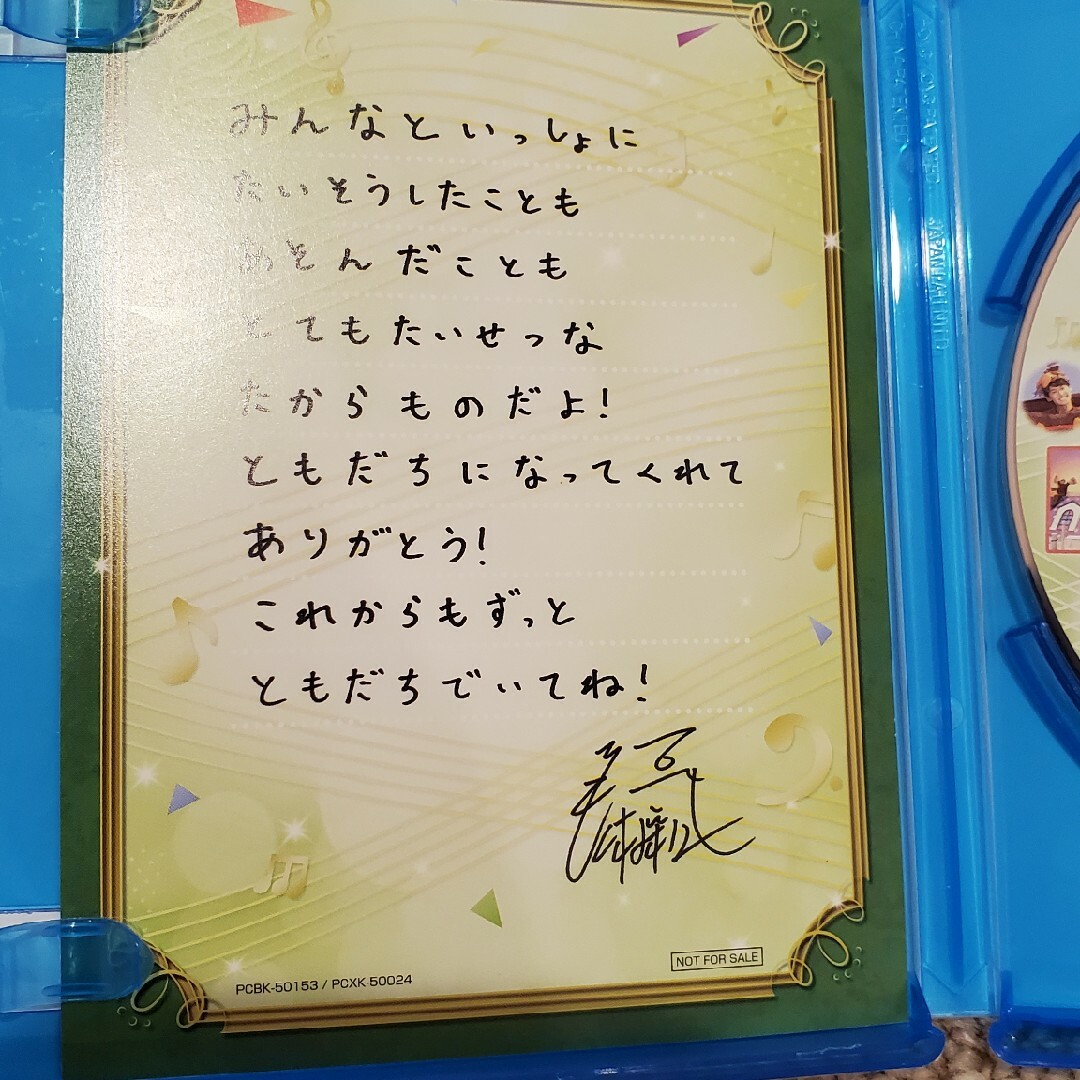 みんなといっしょに
たいそうしたことも
あそんだことも
とてもたいせつな
たからものだよ!
ともだちになってくれて
ありがとう!
これからもずっと
ともだちでいてね!
NOT FOR SALE
PCBK-50153 / PCXK 50024